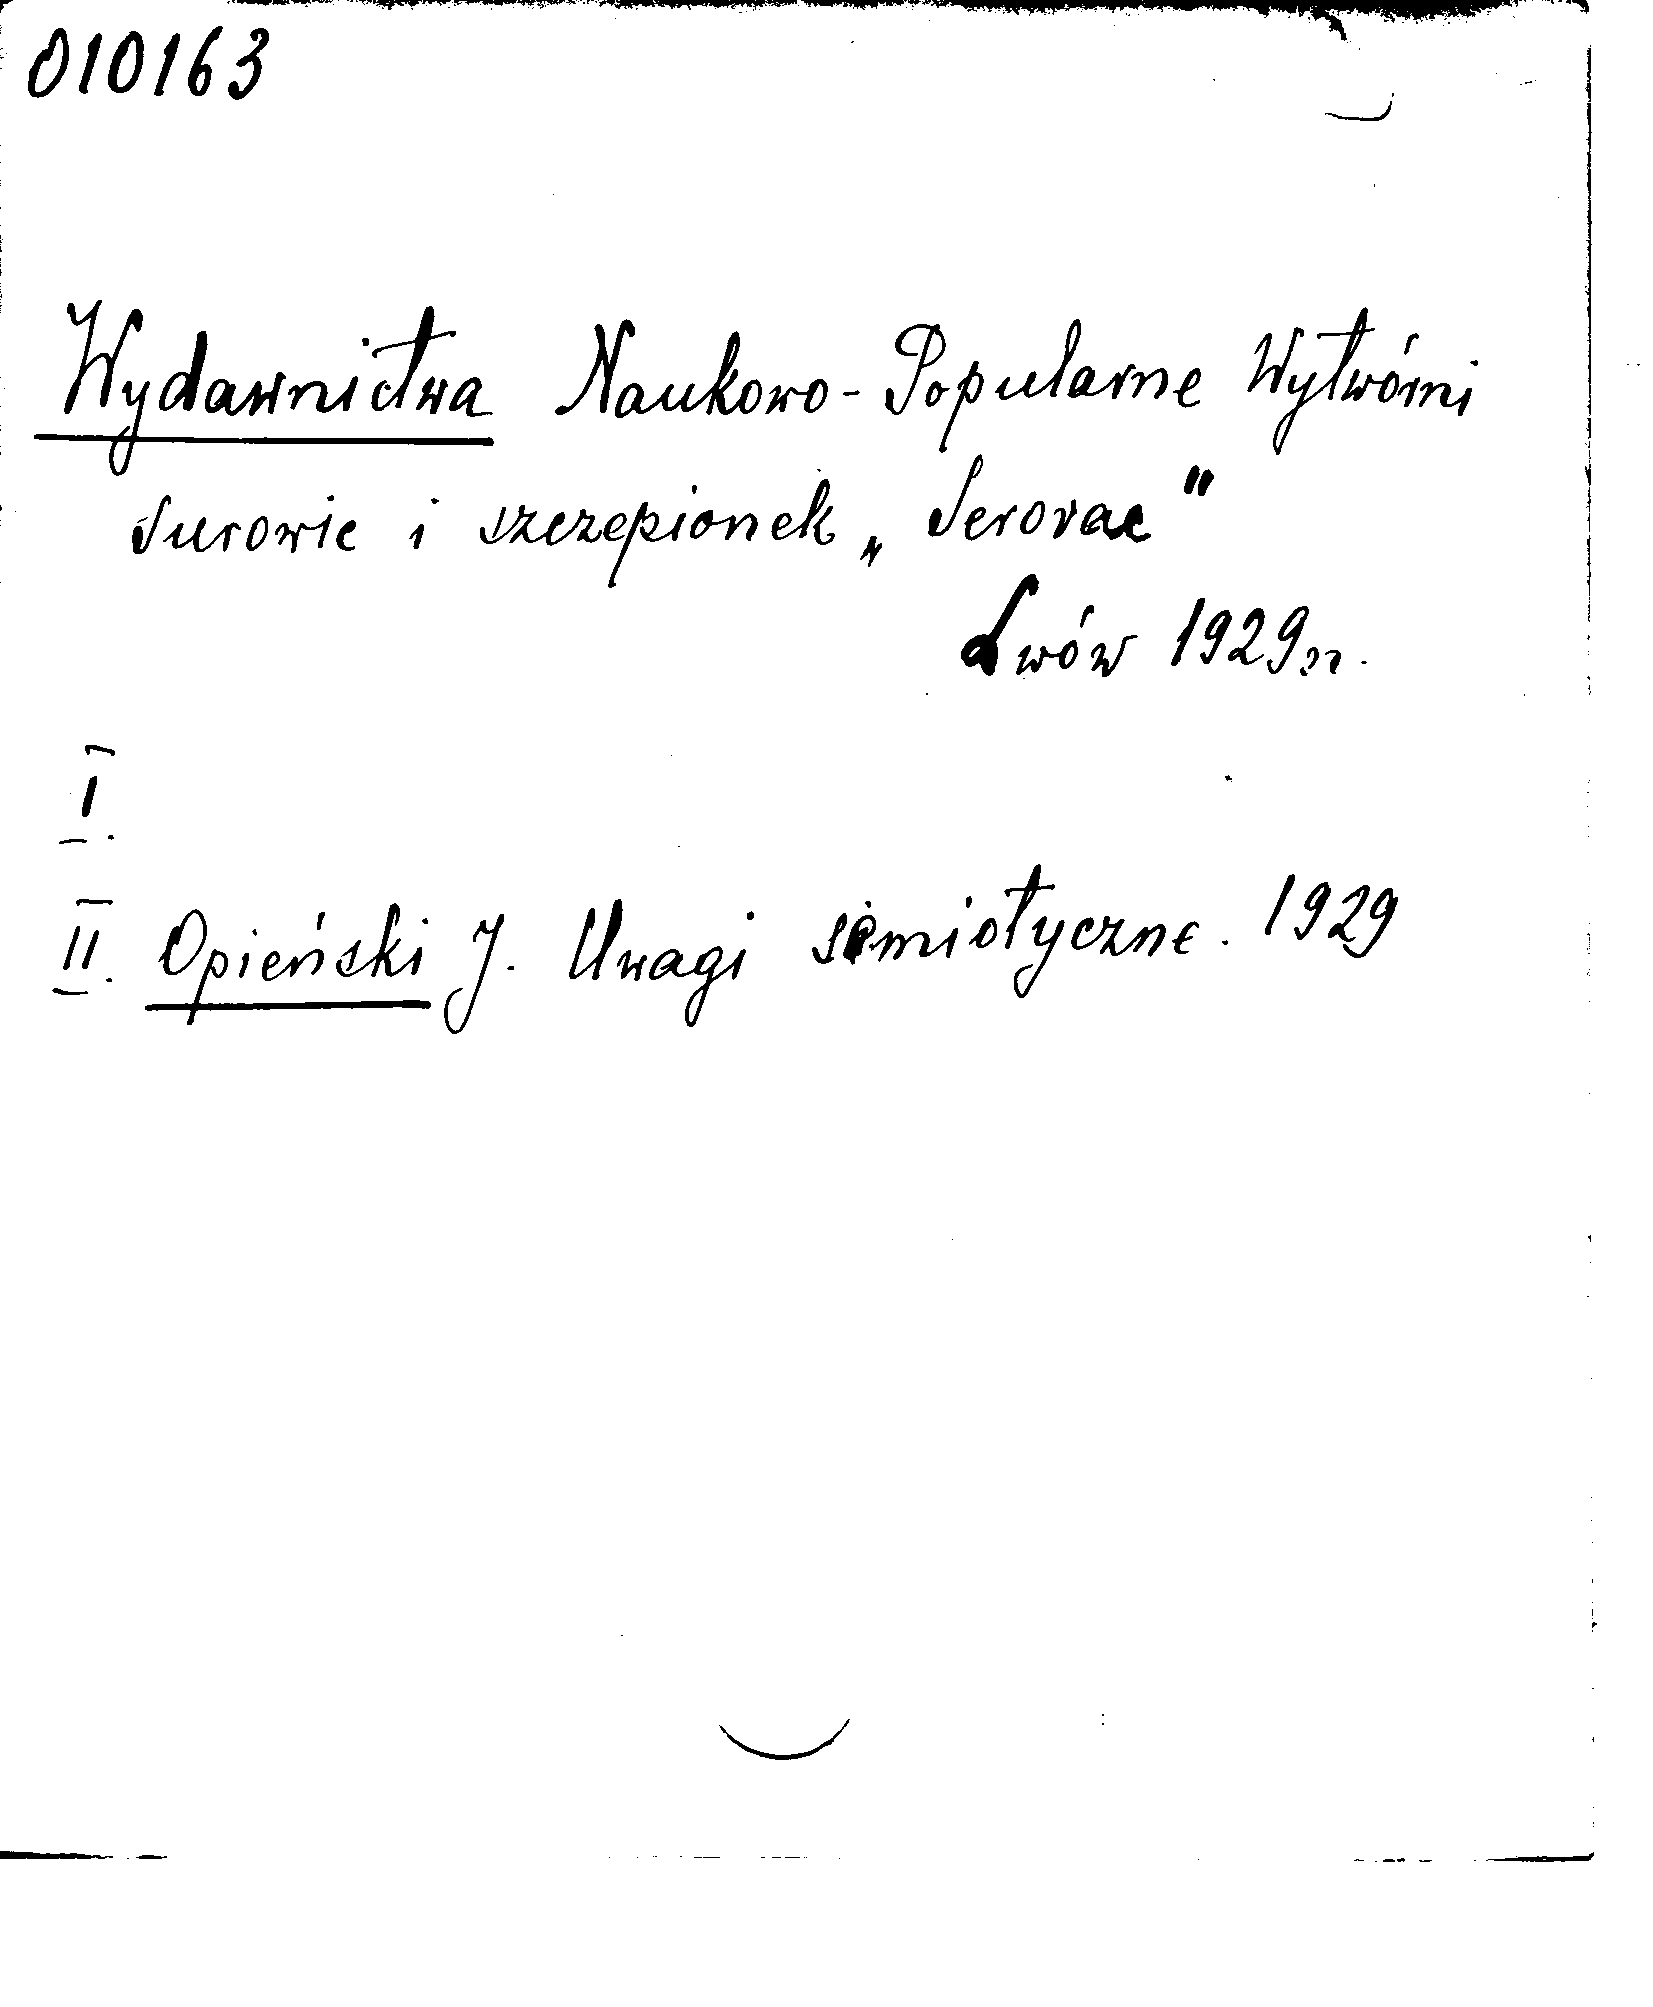 010163
Wydawnictwa Naukowo-Popularne Wytwórni
surowic i szczepionek „Serovac"
Lwów 1929 n.
I.
II. Opieński J. Uwagi semiotyczne. 1929